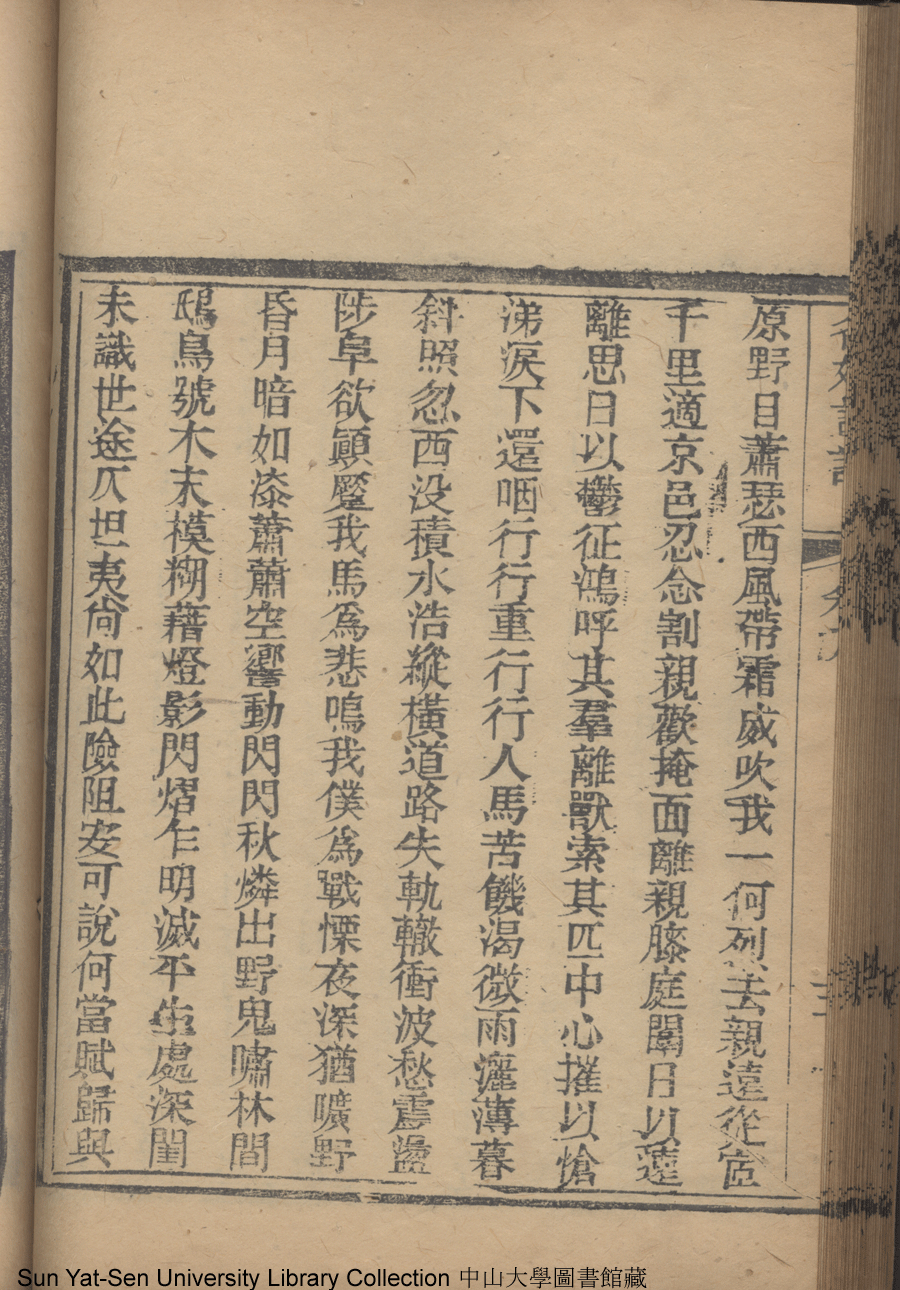 原野日蕭瑟西風帶霜威吹我一何烈去親遠從宦
千里適京邑忍念割親歡掩面離親膝庭闈日以遠
離思日以鬱征鴻呼其羣離獸索其匹中心摧以愴
涕淚下還咽行行重行行人馬苦饑渴微雨灑薄暮
斜照忽西没積水浩縱橫道路失軌轍衝波愁震盪
陟阜欲顚蹷我馬爲悲鳴我僕爲戰慄夜深猶曠野
昏月暗如漆蕭蕭空響動閃閃秋燐出野鬼嘯林間
鴟鳥號木末模糊藉燈影閃熠乍明滅平生處深閨
未識世途仄坦夷尙如此險阻安可說何當賦歸與
Sun Yat-Sen University Library Collection 中山大學圖書館藏